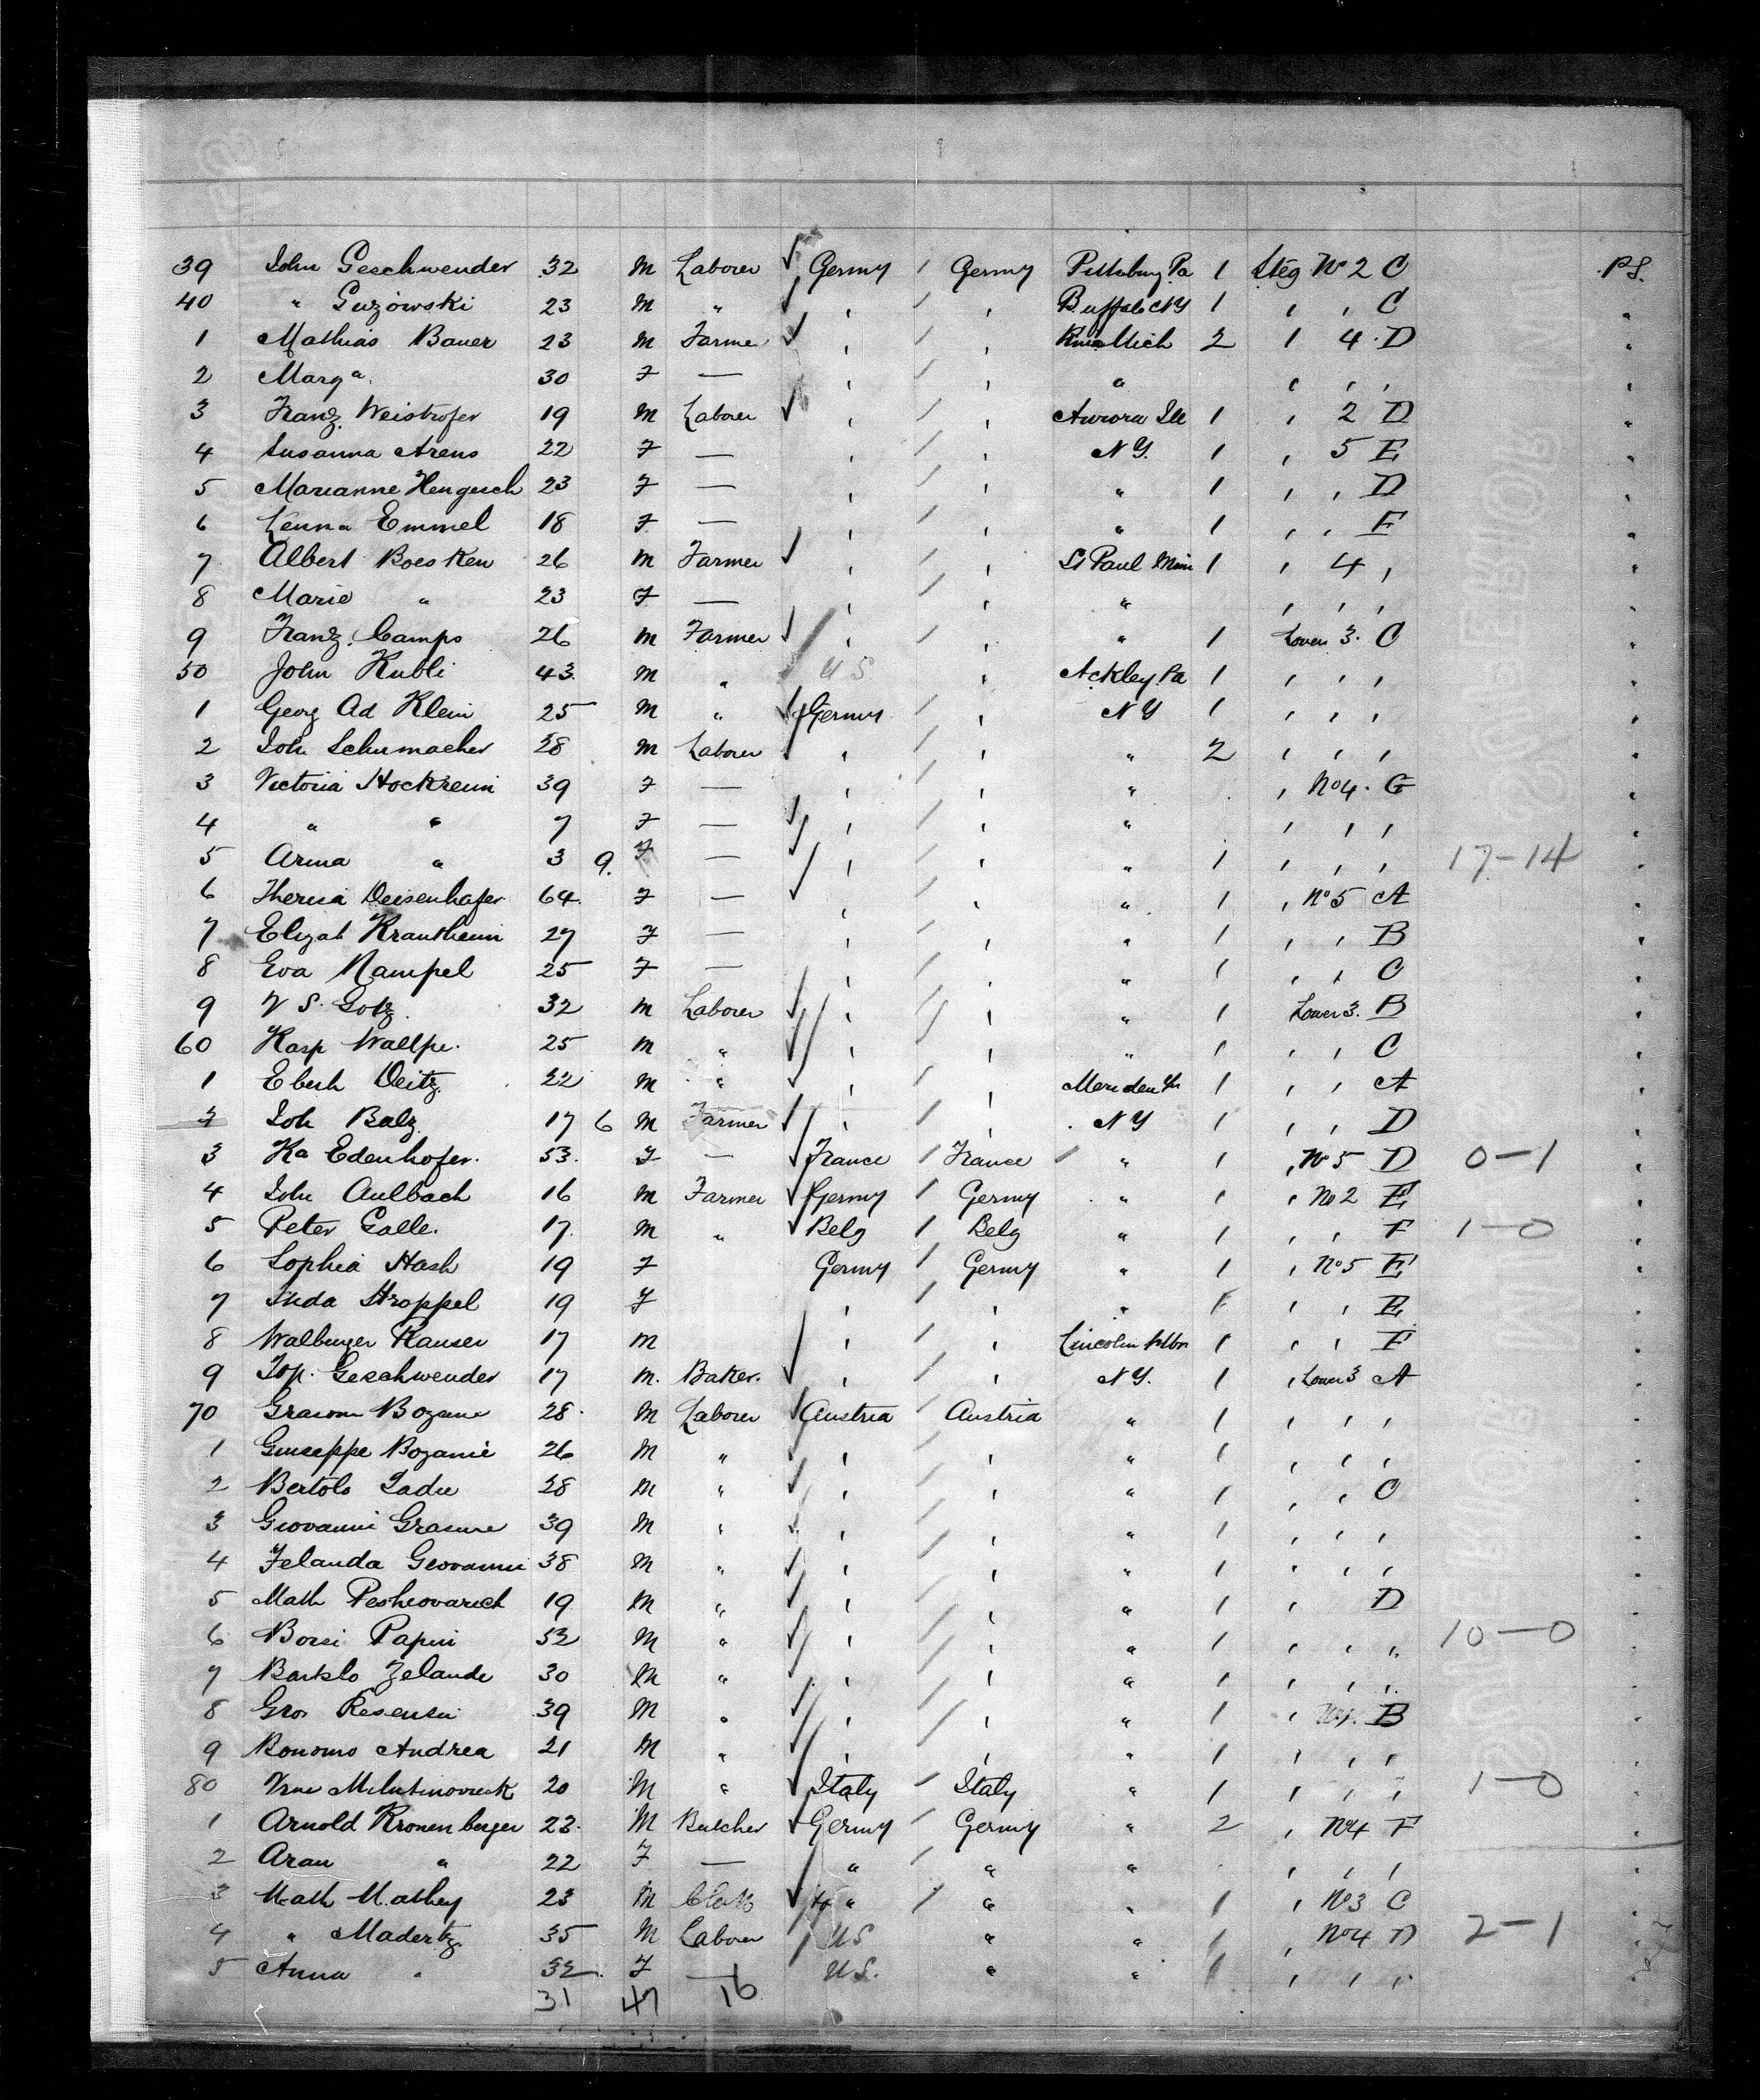 39 John Geschwender 32 M Laborer Germy / Germy Pittsburg Pa 1 Steg No 2 C P.S.
40 " Guzowski 23 M " ' / ' Buffalo NY 1 ' ' C "
1 Mathias Bauer 23 M Farmer ' / ' Mich 2 1 4. D "
2 Marga. 30 F — ' / ' " ' ' ' "
3 Franz Weistrofer 19 M Laborer ' / ' Aurora Ill 1 ' 2 D "
4 Susanna Arens 22 F — ' / ' N Y. 1 ' 5 E "
5 Marianne Hengesch 23 F — ' / ' " 1 ' ' D "
6 Emmel 18 F — ' / ' " 1 ' ' F "
7 Albert Boesken 26 M Farmer ' / ' St Paul Minn 1 ' 4 ' "
8 Marie " 23 F — ' / ' " ' ' ' "
9 Franz Camps 26 M Farmer ' / ' " 1 Lower 3. C "
50 John Kubli 43. M " / U S ' Ackley Pa 1 ' ' ' "
1 Georg Ad Klein 25 M " Germy / ' N Y 1 ' ' ' "
2 Joh Schumacher 28 M Laborer ' / ' " 2 ' ' ' "
3 Victoria Hockreim 39 F — ' / ' " ' No 4. G "
4 " " 7 F — ' / ' " ' ' ' "
5 Anna " 3 9. F — ' / ' " 1 ' ' ' 17-14
6 Theresa Deisenhafer 64. F — ' / ' " 1 ' No 5 A "
7 Elizab Krautheim 27 F — ' / ' " 1 ' ' B "
8 Eva Nampel 25 F — ' / ' " 1 ' ' C "
9 V S. Gotz. 32 M Laborer ' / ' " 1 Lower 3. B "
60 Kasp Wallpe. 25 M " ' / ' " 1 ' ' C "
1 Eberh Deitz. 22 M " ' / ' Meriden 1 ' ' A "
2 Joh Balz. 17 6 M Farmer ' / ' N Y 1 ' ' D "
3 Ka Edenhofer. 53. F — France / France / " 1 ' No 5 D 0-1
4 Joh Aulbach 16 M Farmer Germy / Germy " 1 ' No 2 E "
5 Peter Galle. 17. M " Belg / Belg " 1 ' ' F 1-0
6 Sophia Hash 19 F Germy / Germy " 1 ' No 5 E "
7 Stroppel 19 F ' / ' " 1 ' ' E
8 Walburger Kauser 17 M ' / ' Lincoln 1 ' ' F
9 Jop. Geschwender 17 M. Baker. ' / ' N Y. 1 ' Lower 3 A
70 28. M Laborer Austria / Austria " 1 ' ' '
1 Giuseppe Bozanie 26 M " ' / ' " 1 ' ' '
2 Bertolo 28 M " ' / ' " 1 ' ' C
3 Giovanni 39 M " ' / ' " 1 ' ' '
4 Zelanda Giovanni 38 M " ' / ' " 1 ' ' '
5 Math 19 M " ' / ' " 1 ' D
6 Papin 52 M " ' / ' " 1 ' ' " 10-0
7 Zelande 30 M " ' / ' " 1 ' ' '
8 39 M " ' / ' " 1 ' B
9 Bonomo Andrea 21 M " ' / ' " 1 ' ' '
80 20 M " Italy / Italy " 1 ' ' ' 1-0
1 Arnold Kronenberger 22. M Butcher Germy / Germy " 2 ' No 4 F
2 " 22 F — / " " " ' ' '
3 Math Mathey 23 M " / " " 1 ' No 3 C
4 " Madertz 35 M Laborer / U S " " 1 ' No 4 D 2-1
5 Anna " 32. F — U S. " " 1 ' ' '
31 47 16